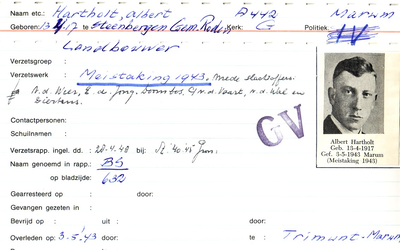 Naam etc.: Hartholt, Albert A442 Marum
Geboren: 13.4.'17 te Steenbergen Gem. Roden Kerk: G Politiek:
Landbouwer
Verzetsgroep :
Verzetswerk : Meistaking 1943. Mede slachtoffers:
de Jong, v.d. Wal en
Contactpersonen:
Schuilnamen :
Verzetsrapp. ingel. dd. : 28-4-48 bij:
Naam genoemd in rapp.: BS
op bladzijde: 632
Gearresteerd op : door:
Gevangen gezeten in :
Bevrijd op : uit : door:
Overleden op: 3-5-'43 door: te : Trimunt-Marum
GV
Albert Hartholt
Geb. 13-4-1917
Gef. 3-5-1943 Marum
(Meistaking 1943)